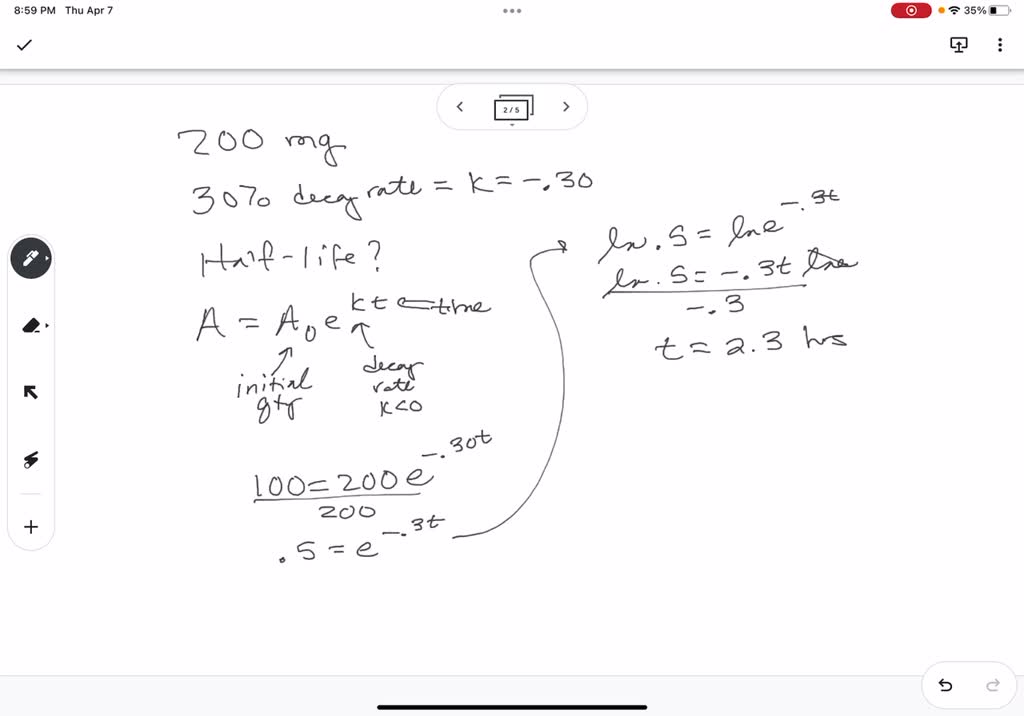 8:59 PM Thu Apr 7
35%
2/5
200 mg
30% decay rate = K = -.30
Half-life?
A = A₀e^kt ← time
initial qty
decay rate K<0
100 = 200e^-.30t
200
.5 = e^-.3t
ln .5 = ln e^-.3t
ln .5 = -.3t ln e
-.3
t = 2.3 hrs